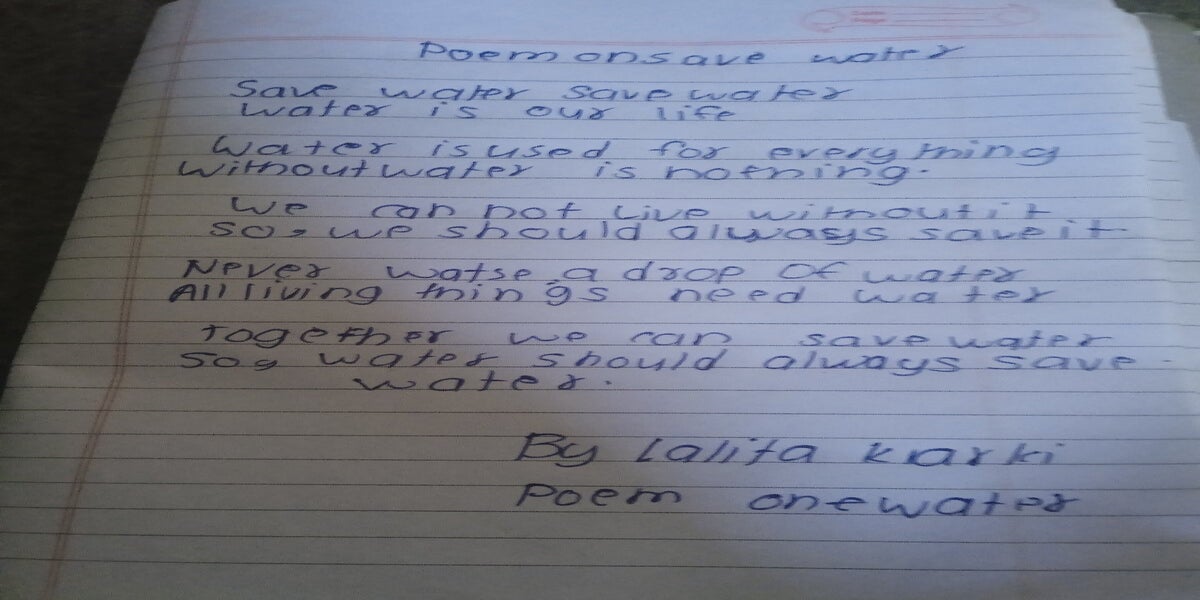 Poem on save water
Save water save water
water is our life
Water is used for everything
without water is nothing.
We can not live without it
so, we should always save it
Never watse a drop of water
All living things need water
Together we can save water
So, water should always save
water.
By Lalita karki
Poem one water